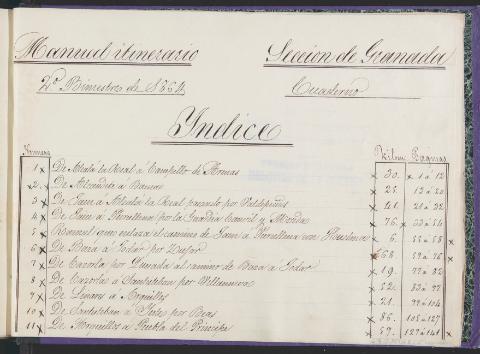 Manual itinerario Seccion de Granada
2º Bimestre de 1864 Cuaderno
Yndice
Números Kilms Páginas
1 x De Alcalá la Real á Campillo de Arenas x 30. x 1 á 12
x 2. x De Alcaudete á Baena x 25. 13 á 20
3 x De Jaen á Alcalá la Real pasando por Valdepeñas x 41. 21 á 32
4 x De Jaen á por la Guardia y x 76. x 33 á 54
5 x Ramal que enlaza el camino de Jaen á con x 6. 55 á 58 x
6 x De Baza á Jodar por x 68. 59 á 76 x
7 x De Cazorla por Quesada al camino de Baza á Jodar x 19. 77 á 82
8 x De Cazorla á Santisteban por Villanueva x 52. 83 á 98
9 x De Linares á Arquillos x 21. 99 á 104
10 x De Santisteban á Yeste por Beas x 86. 105 á 127
11 x De Arquillos á Puebla del Príncipe x 57. 127 á 141 x